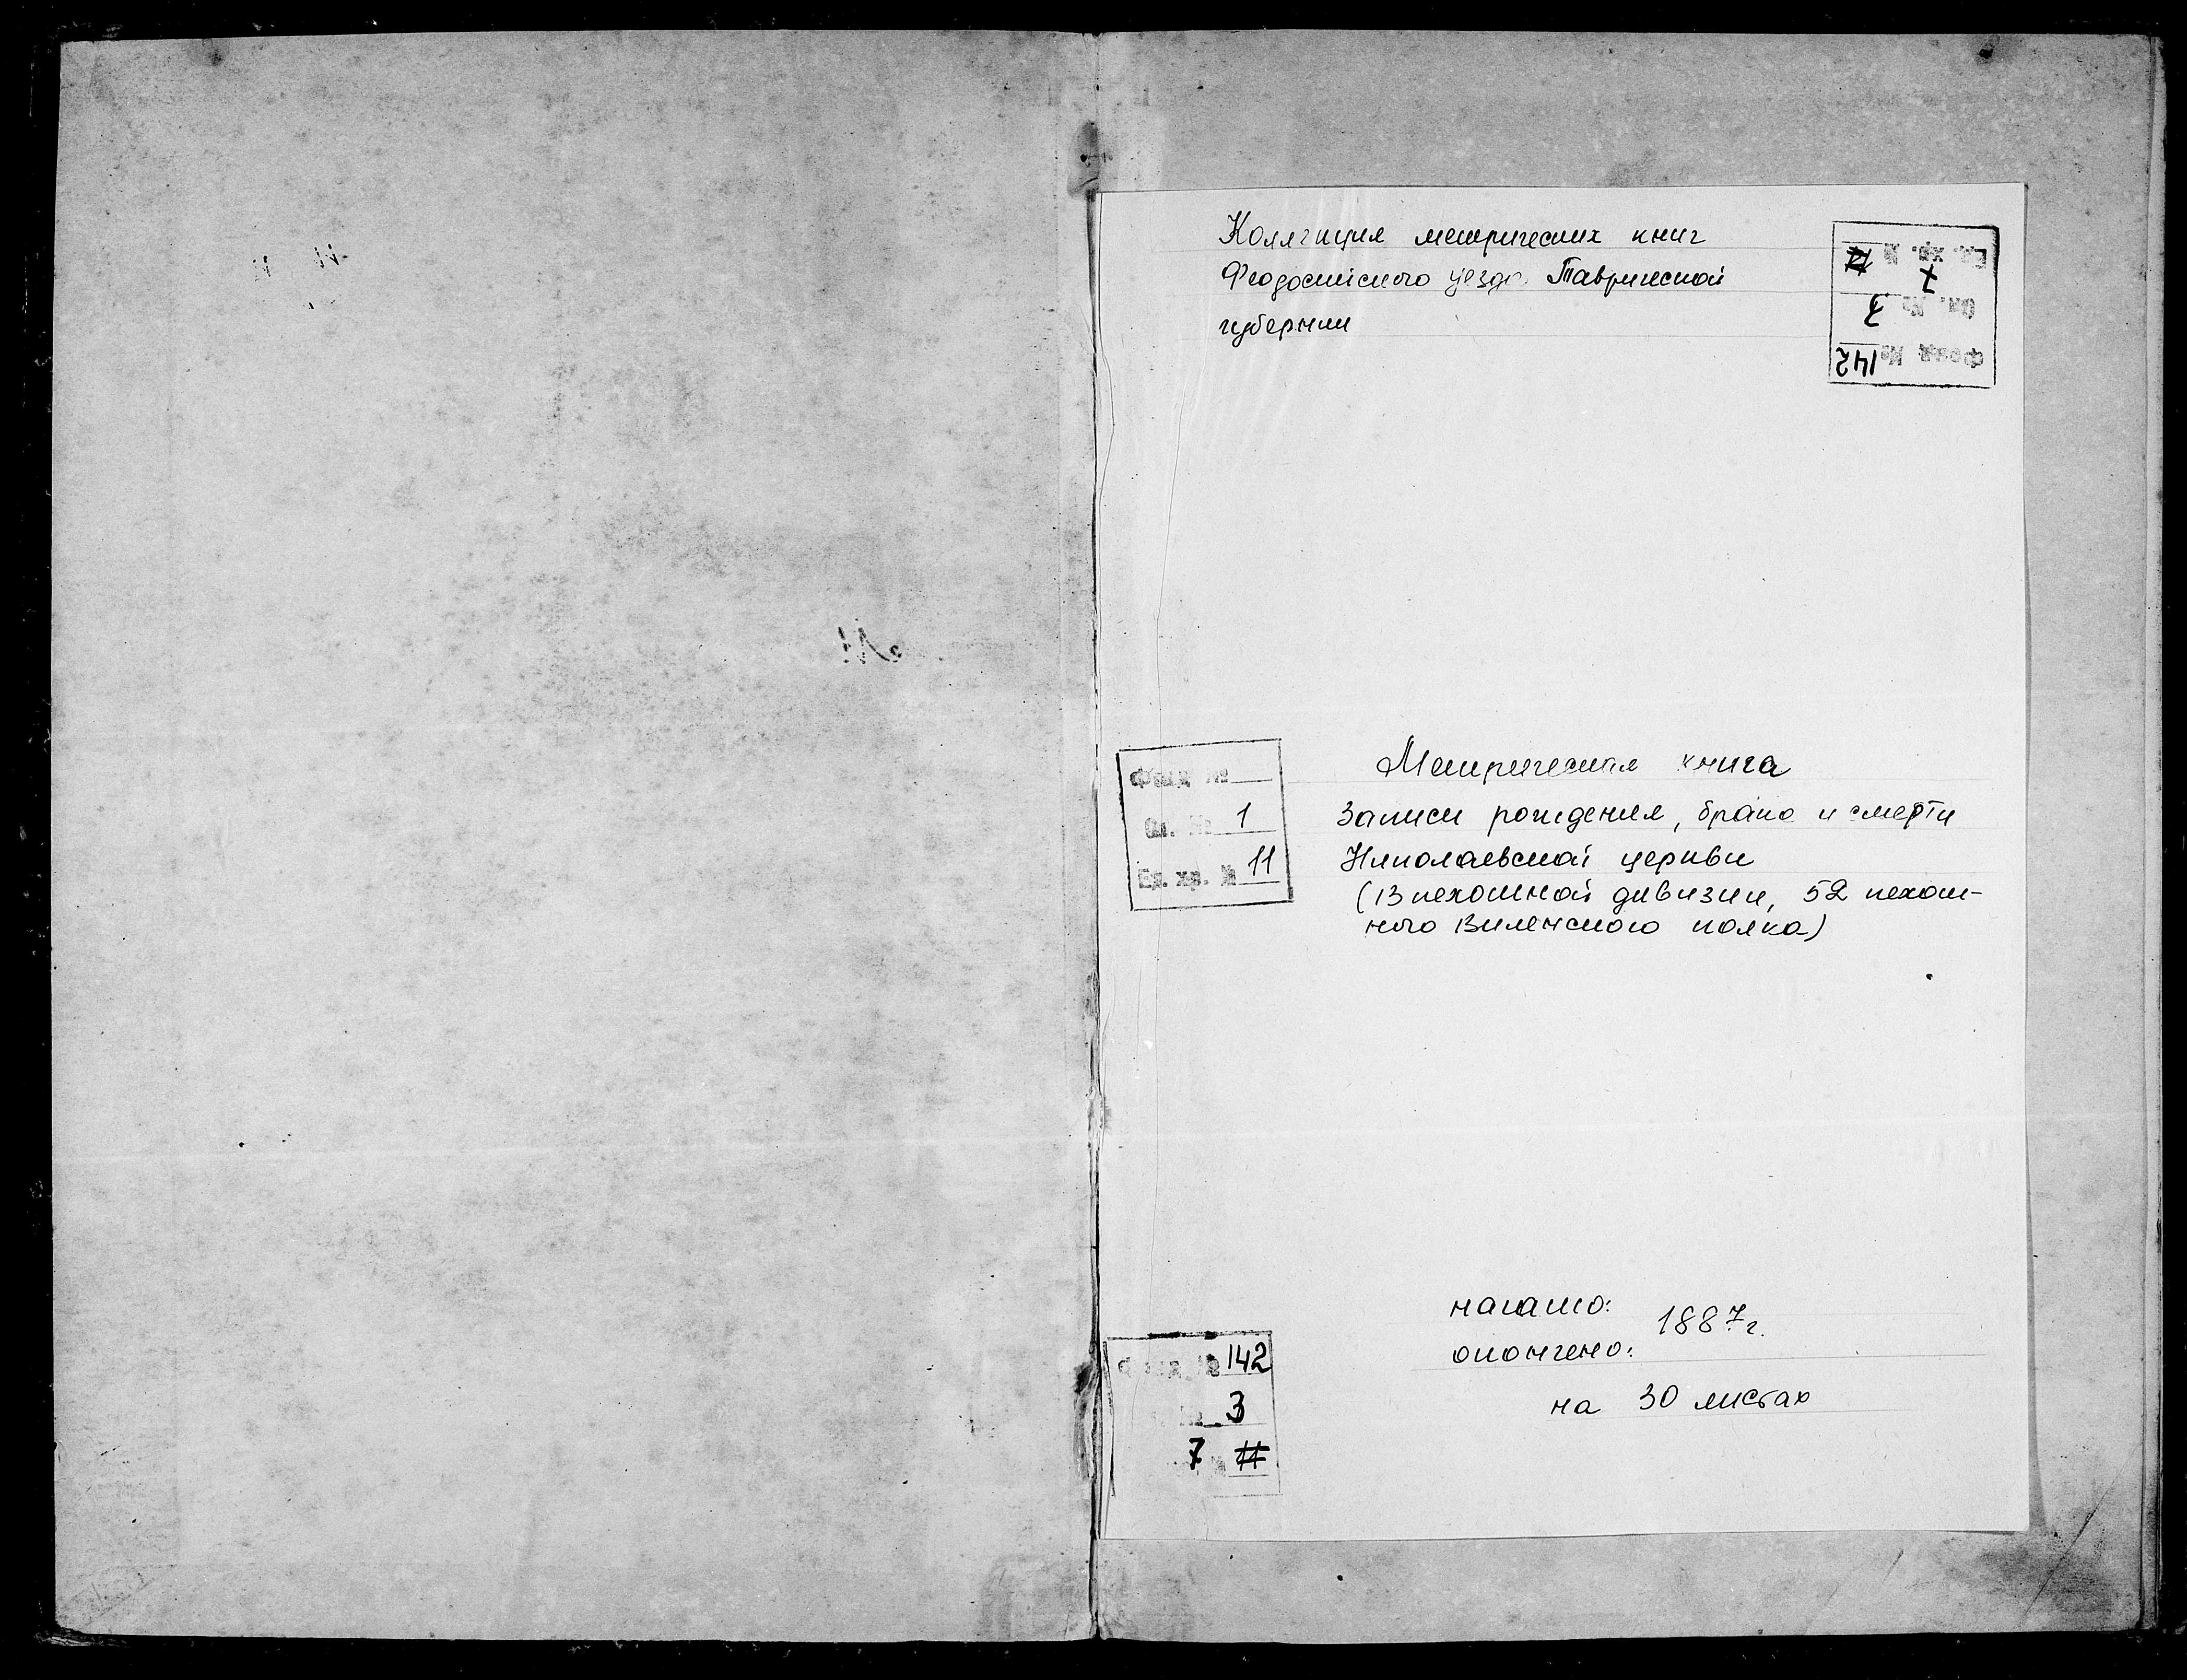 Коллекция метрических книг
Феодосийского уезда Таврической
губернии
Фонд № 142
Оп. № 3
Ед. хр. № 7
Фонд №
Оп. № 1
Ед. хр. № 11
Метрическая книга
Записи рождения, брака и смерти
Николаевской церкви
(13 пехотной дивизии, 52 пехот-
ного Виленского полка)
начато:
1887 г.
окончено:
на 30 листах
Фонд № 142
№ 3
7 № 11